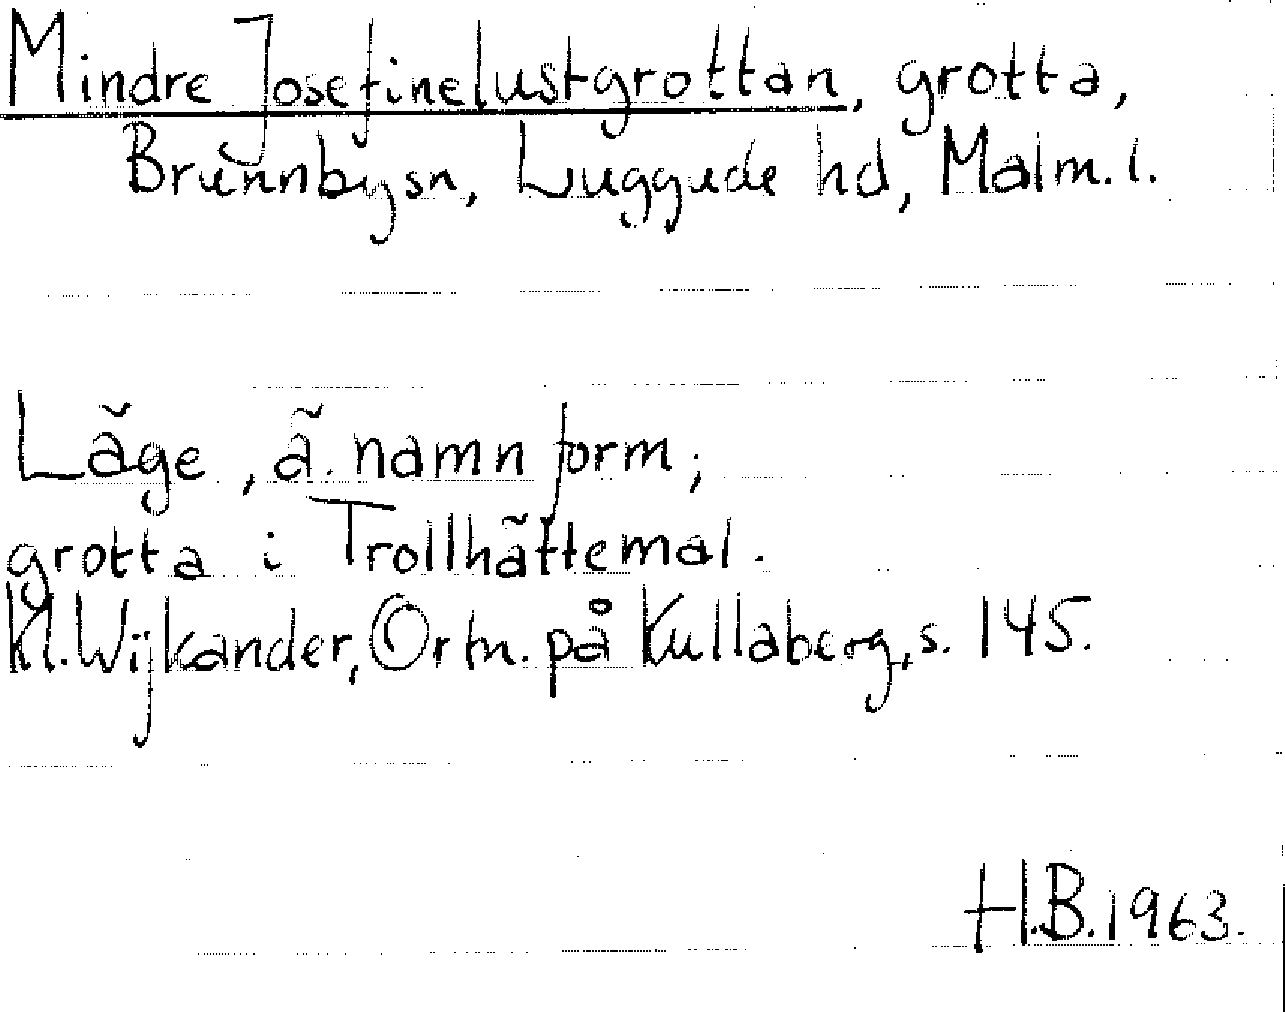 Mindre Josefinelustgrottan, grotta,
Brunnbysn, Luggude hd, Malm. l.
Läge, ä. namnform;
grotta i Trollhättemal.
Kl. Wijkander, Ortn. på Kullaberg, s. 145.
H.B. 1963.